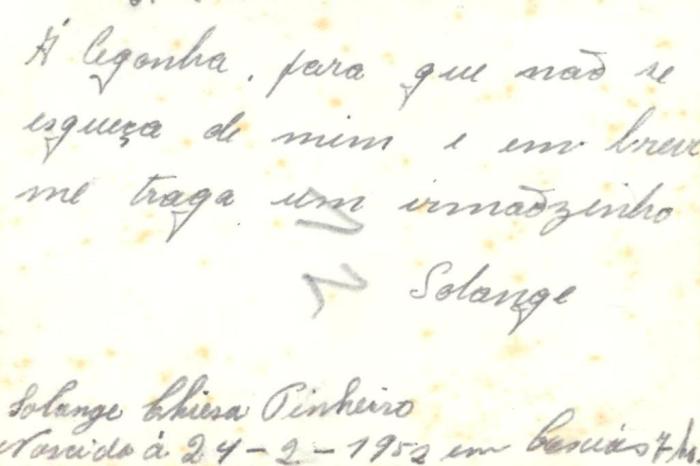 Á Cegonha, para que não se
esqueça de mim e em breve
me traga um irmãozinho
Solange
Solange Chiesa Pinheiro
Nascida á 24-2-1952 em Caxias 7 hs.